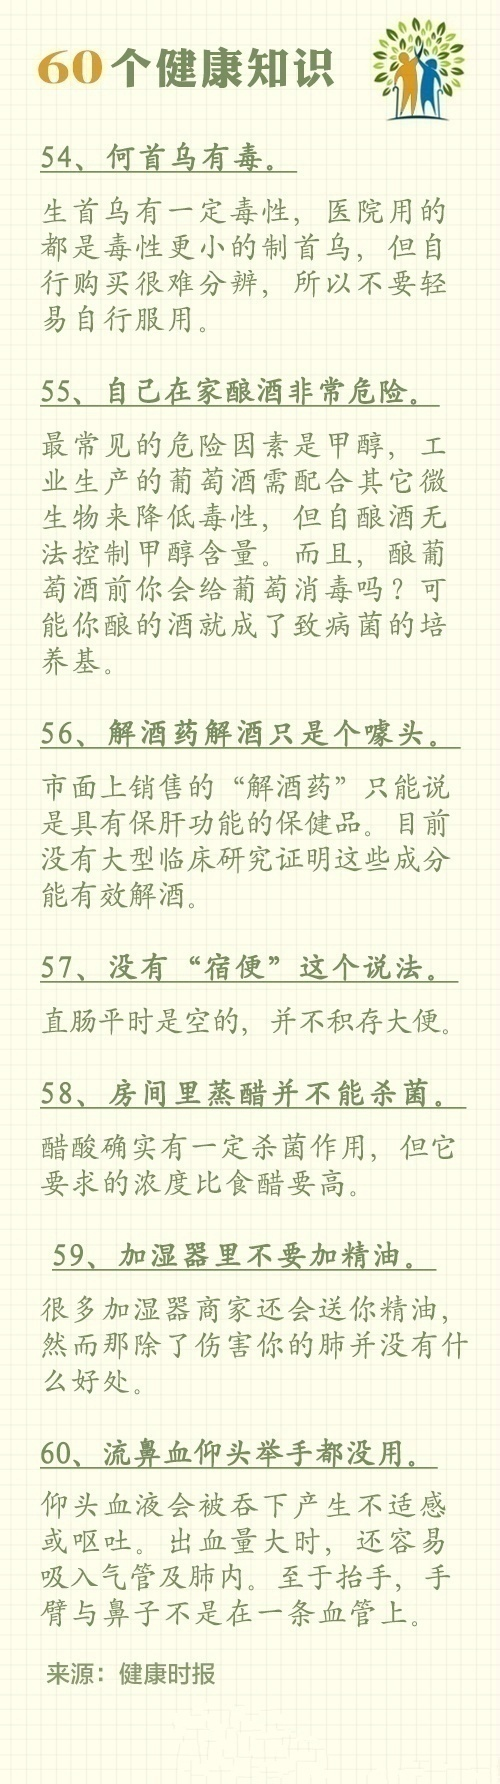 60个健康知识
54、何首乌有毒。
生首乌有一定毒性，医院用的
都是毒性更小的制首乌，但自
行购买很难分辨，所以不要轻
易自行服用。
55、自己在家酿酒非常危险。
最常见的危险因素是甲醇，工
业生产的葡萄酒需配合其它微
生物来降低毒性，但自酿酒无
法控制甲醇含量。而且，酿葡
萄酒前你会给葡萄消毒吗？可
能你酿的酒就成了致病菌的培
养基。
56、解酒药解酒只是个噱头。
市面上销售的“解酒药”只能说
是具有保肝功能的保健品。目前
没有大型临床研究证明这些成分
能有效解酒。
57、没有“宿便”这个说法。
直肠平时是空的，并不积存大便。
58、房间里蒸醋并不能杀菌。
醋酸确实有一定杀菌作用，但它
要求的浓度比食醋要高。
59、加湿器里不要加精油。
很多加湿器商家还会送你精油，
然而那除了伤害你的肺并没有什
么好处。
60、流鼻血仰头举手都没用。
仰头血液会被吞下产生不适感
或呕吐。出血量大时，还容易
吸入气管及肺内。至于抬手，手
臂与鼻子不是在一条血管上。
来源：健康时报